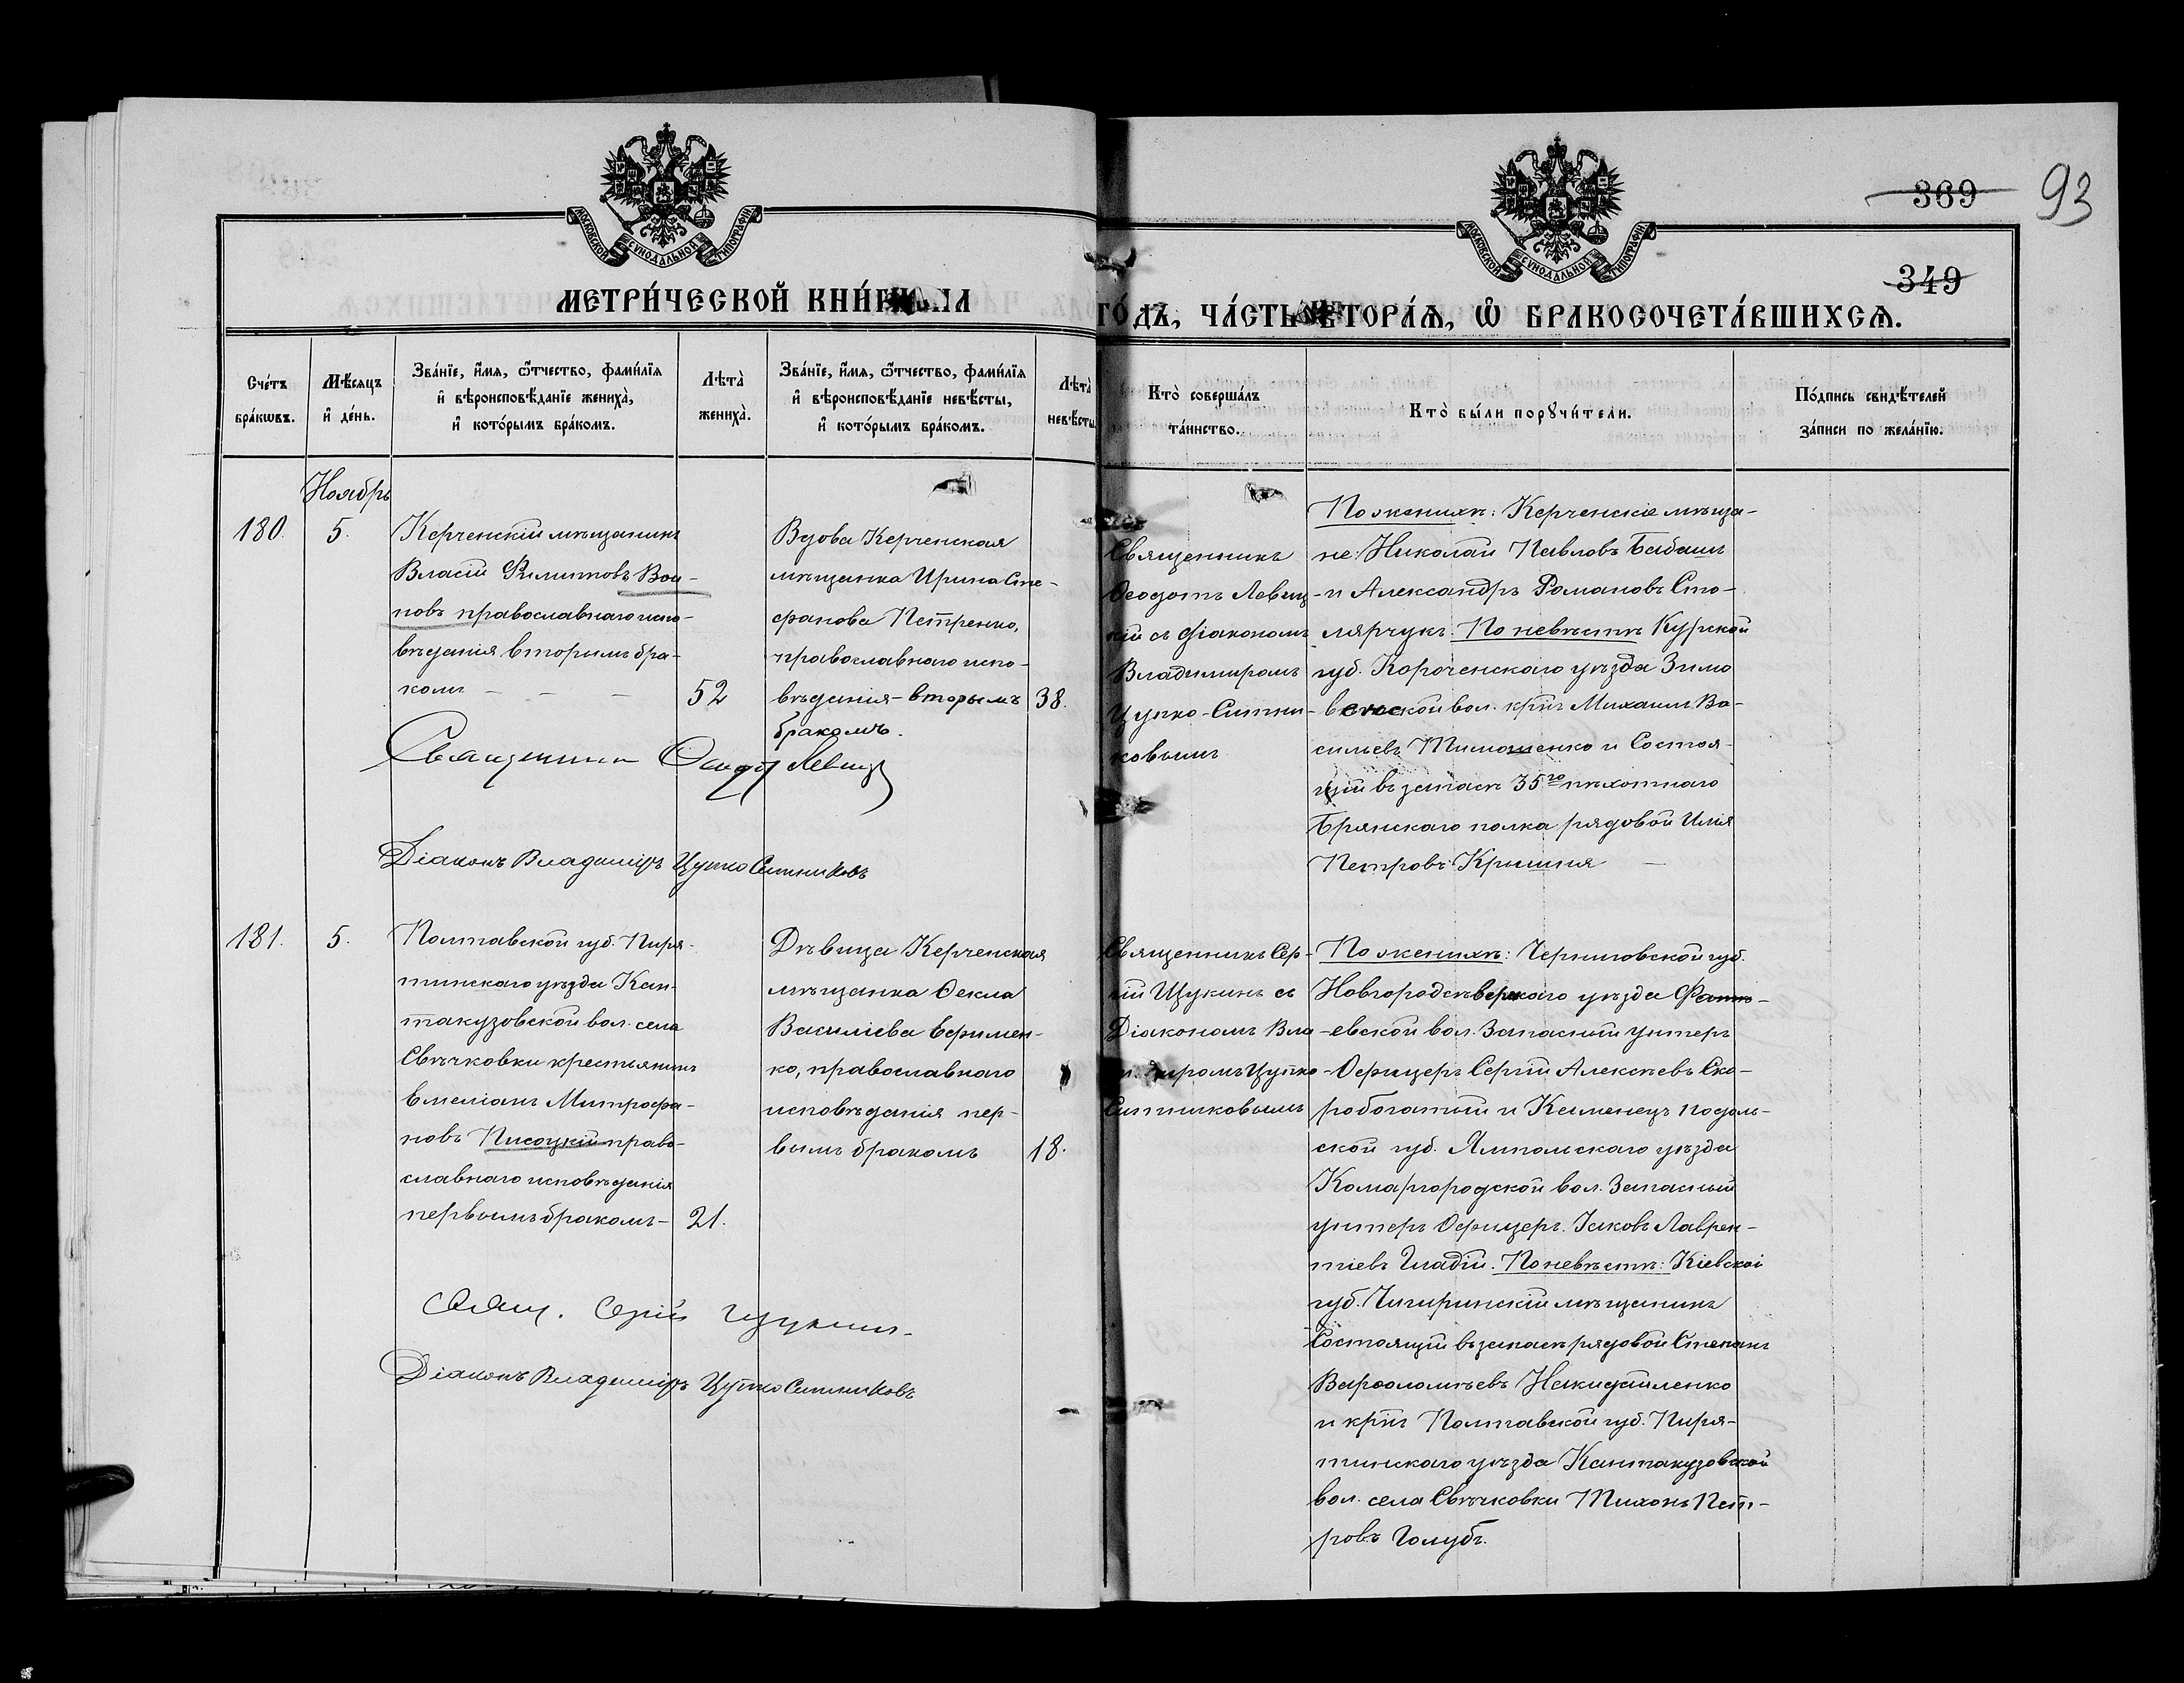 369
93
349
МОСКОВСКОЙ СѴНОДАЛЬНОЙ ТИПОГРАФІИ
МОСКОВСКОЙ СѴНОДАЛЬНОЙ ТИПОГРАФІИ
МЕТРИ́ЧЕСКОЙ КНИ́ГИ НА
ГО́ДЪ, ЧА́СТЬ ВТОРА́Ѧ, Ѽ БРАКОСОЧЕТА́ВШИХСѦ.
Сче́тъ бра́кѡвъ.
Мѣ́сяцъ и҆ де́нь.
Зва́нїе, и҆́мя, ѻ҆́тчество, фами́лїя
и҆ вѣроисповѣ́данїе жениха̀,
и҆ кото́рымъ бра́комъ.
Лѣта̀ жениха̀.
Зва́нїе, и҆́мя, ѻ҆́тчество, фами́лїя
и҆ вѣроисповѣ́данїе невѣ́сты,
и҆ кото́рымъ бра́комъ.
Лѣта̀ невѣ́сты
Кто̀ соверша́лъ та́инство.
Кто̀ бы́ли порꙋчи́тели.
По́дпись свидѣ́телей за́писи по жела́нїю.
Ноябрь
180.
5.
Керченскій мѣщанинъ
Власій Филиповъ Вои-
новъ православнаго испо-
вѣданія вторымъ бра-
комъ — — —
52
Вдова Керченская
мѣщанка Ирина Сте-
фанова Петренко,
православнаго испо-
вѣданія – вторымъ
бракомъ.
38.
Священникъ
Ѳеодотъ Левиц-
кій съ діакономъ
Владимиромъ
Цупко-Ситни-
ковымъ
По женихѣ: Керченскіе мѣща-
не: Николай Павловъ Бабашъ
и Александръ Романовъ Сто-
лярчукъ. По невѣстѣ Курской
губ. Короченскаго уѣзда Зимо
венской вол. крнъ Михаилъ Ва-
сильевъ Тимошенко и Состоя-
щій въ запасѣ 35го пѣхотнаго
Брянскаго полка рядовой Илія
Петровъ Кришня —
Священникъ Ѳеодотъ Левицкій
Діаконъ Владиміръ Цупко Ситниковъ
181.
5.
Полтавской губ. Пиря-
тинскаго уѣзда Кан-
такузовской вол. села
Свѣчковки крестьянинъ
Емеліанъ Митрофа-
новъ Писоцкій право-
славнаго исповѣданія
первымъ бракомъ –
21.
Дѣвица Керченская
мѣщанка Ѳекла
Василіева Ефимен-
ко, православнаго
исповѣданія пер-
вымъ бракомъ
18.
Священникъ Сер-
гій Щукинъ съ
Діакономъ Вла-
диміромъ Цупко
Ситниковымъ
По женихѣ: Черниговской губ.
Новгородсѣверскаго уѣзда
-евской вол. Запасный унтеръ
-Офицеръ Сергій Алексѣевъ Ско-
робогатый и Каменецъ подоль-
ской губ. Ямпольскаго уѣзда
Комаргородской вол. Запасный
унтеръ Офицеръ. Іаковъ Лаврен-
тіевъ Гладій. По невѣстѣ: Кіевской
губ. Чигиринскій мѣщанинъ
Состоящій въ запасѣ рядовой Степанъ
Варѳоломѣевъ Накидайленко
и крнъ Полтавской губ. Пиря-
тинскаго уѣзда Кантакузовской
вол. села Свѣчковки Тихонъ Пет-
ровъ Голубъ.
Свящ. Сергій Щукинъ.
Діаконъ Владиміръ Цупко Ситниковъ